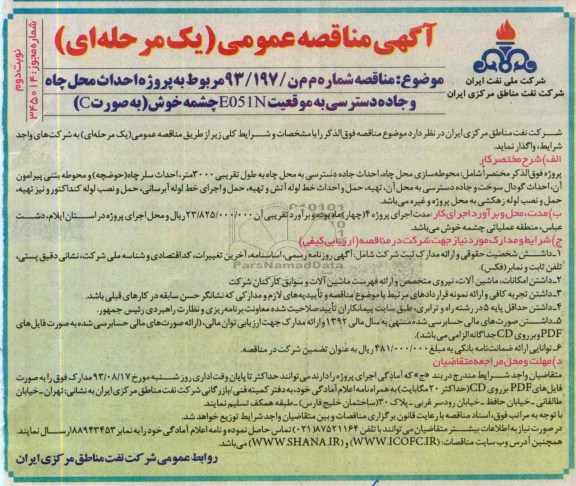 آگهی مناقصه عمومی (یک مرحله‌ای)
نوبت دوم
شماره مجوز: ۳۴۵۰۱۴
شرکت ملی نفت ایران
شرکت نفت مناطق مرکزی ایران
موضوع: مناقصه شماره م م ن/۹۳/۱۹۷ مربوط به پروژه احداث محل چاه
و جاده دسترسی به موقعیت E051N چشمه خوش (به صورت C)
شرکت نفت مناطق مرکزی ایران در نظر دارد موضوع مناقصه فوق‌الذکر را با مشخصات و شرایط کلی زیر از طریق مناقصه عمومی (یک مرحله‌ای) به شرکت‌های واجد
شرایط، واگذار نماید.
الف) شرح مختصر کار
پروژه فوق‌الذکر مختصراً شامل: محوطه‌سازی محل چاه، احداث جاده دسترسی به محل چاه به طول تقریبی ۳۰۰۰متر، احداث سلر چاه (حوضچه) و محوطه بتنی پیرامون
آن، احداث گودال سوخت و جاده دسترسی به محل آن، تهیه، حمل و احداث خط لوله آتش و تهیه، حمل و اجرای خط لوله آبرسانی، حمل و نصب لوله کنداکتور و نیز تهیه،
حمل و نصب لوله زهکشی به محل پروژه و غیره می‌باشد.
ب) مدت، محل و برآورد اجرای کار: مدت اجرای پروژه ۴(چهار) ماه بوده و برآورد تقریبی آن ۲۳/۸۲۵/۰۰۰/۰۰۰ ریال و محل اجرای پروژه در استان ایلام، دشت
عباس، منطقه عملیاتی چشمه خوش می‌باشد.
ج) شرایط و مدارک مورد نیاز جهت شرکت در مناقصه (ارزیابی کیفی)
۱-داشتن شخصیت حقوقی و ارائه مدارک ثبت شرکت شامل: آگهی روزنامه رسمی، اساسنامه، آخرین تغییرات، کد اقتصادی و شناسه ملی شرکت، نشانی دقیق پستی،
تلفن ثابت و نمابر (فکس).
۲-داشتن امکانات، ماشین آلات، نیروی متخصص و ارائه فهرست ماشین آلات و سوابق کارکنان شرکت
۳-داشتن تجربه کافی و ارائه نمونه قراردادهای مرتبط با موضوع مناقصه و تأییدیه‌های لازم و مدارکی که نشانگر حسن سابقه در کارهای قبلی باشد.
۴-داشتن حداقل پایه ۵ در رشته راه و ترابری، طبق سایت پیمانکاران تأیید صلاحیت شده معاونت برنامه‌ریزی و نظارت راهبردی رئیس جمهور
۵-داشتن صورت‌های مالی حسابرسی شده منتهی به سال مالی ۱۳۹۲ و ارائه مدارک جهت ارزیابی توان مالی، (ارائه صورت‌های مالی حسابرسی شده به صورت فایل‌های
PDF و بر روی CD جداگانه الزامی می‌باشد).
۶-توانایی ارائه ضمانتنامه بانکی به مبلغ ۴۸۱/۰۰۰/۰۰۰ ریال به عنوان تضمین شرکت در مناقصه.
د) مهلت و محل مراجعه متقاضیان
متقاضیان واجد شرایط مندرج در بند «ج» که آمادگی اجرای پروژه را دارند می‌توانند حداکثر تا پایان وقت اداری روز شنبه مورخ ۹۳/۰۸/۱۷ مدارک فوق را به صورت
فایل‌های PDF بر روی CD (حداکثر ۲۰ مگابایت) به همراه نامه اعلام آمادگی خود، به دفتر کمیته فنی/بازرگانی شرکت نفت مناطق مرکزی ایران به نشانی: تهران-خیابان
طالقانی-خیابان حافظ-خیابان رودسر غربی-پلاک ۳۰ (ساختمان خلیج فارس)-طبقه همکف تسلیم نمایند.
با توجه به مراتب فوق، اسناد مناقصه با رعایت قانون برگزاری مناقصات و بین متقاضیان واجد شرایط توزیع خواهد شد.
در صورت نیاز به اطلاعات بیشتر متقاضیان می‌توانند با تلفن ۸۷۵۲۱۱۶۴(۰۲۱) تماس حاصل نموده و نامه اعلام آمادگی خود را به نمابر ۸۸۹۴۳۴۵۳ ارسال نمایند.
همچنین آدرس وب سایت مناقصات: (WWW.ICOFC.IR) و (WWW.SHANA.IR) می‌باشد.
روابط عمومی شرکت نفت مناطق مرکزی ایران
ParsNamadData